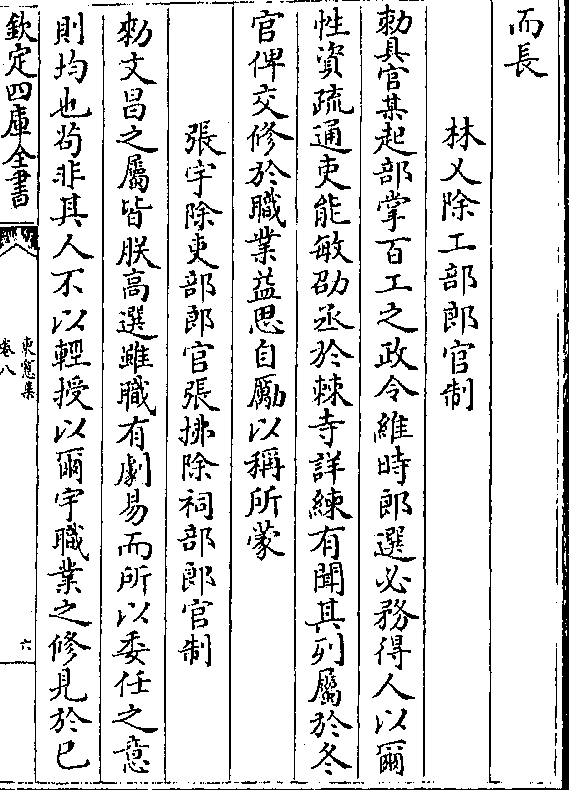 而長
林乂除工部郎官制
勅具官某起部掌百工之政令維時郎選必務得人以爾
性資疏通吏能敏劭丞於棘寺詳練有聞其列屬於冬
官俾交修於職業益思自勵以稱所蒙
張宇除吏部郎官張拂除祠部郎官制
勑文昌之屬皆朕高選雖職有劇易而所以委任之意
則均也茍非其人不以輕授以爾宇職業之修見於已
欽定四庫全書
東窻集
卷八
六